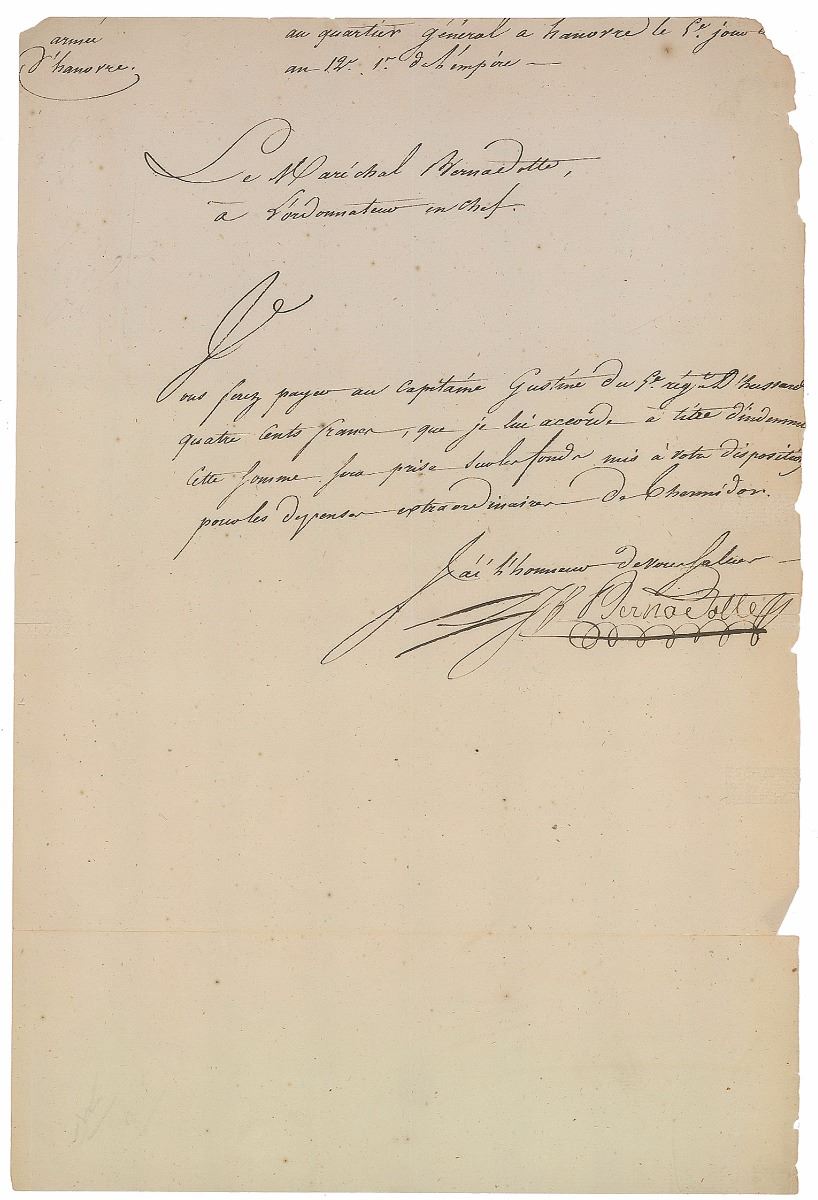 armée
d'hanovre.
au quartier général a hanovre le 5e. jour
an 12e. 1er. de l'empire —
Le Maréchal Bernadotte,
à L'ordonnateur en chef.
Vous ferez payer au Capitaine Gustiné du 5e. régt. D'hussard
quatre cents francs, que je lui accorde à titre d'indemni
cette somme sera prise sur les fonds mis à votre disposition
pour les depenses extraordinaires de Thermidor.
J'ai l'honneur de vous saluer —
J Bernadotte